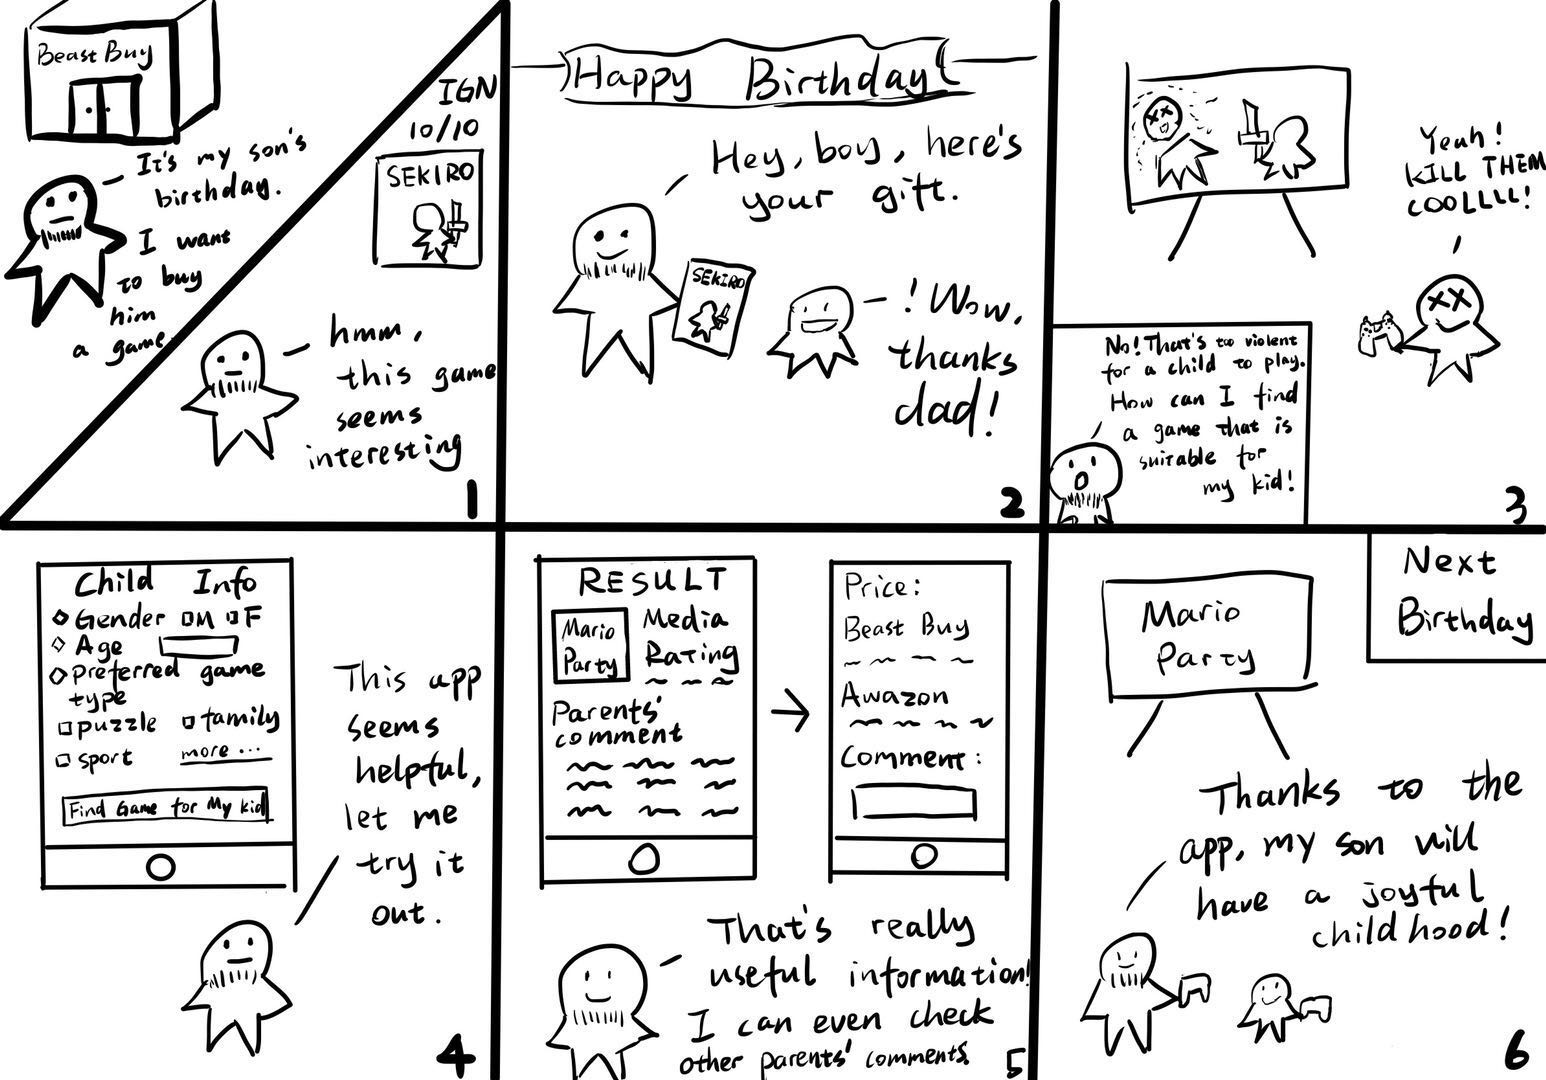 Beast Buy
It's my son's
birthday.
I want
to buy
him
a game
IGN
10/10
SEKIRO
hmm,
this game
seems
interesting
1
Happy Birthday
Hey, boy, here's
your gift.
SEKIRO
! Wow,
thanks
dad!
2
Yeah!
KILL THEM
COOLLLL!
No! That's too violent
for a child to play.
How can I find
a game that is
suitable for
my kid!
3
Child Info
Gender M F
Age
Preferred game
type
puzzle family
sport more...
Find Game for My kid
This app
seems
helpful,
let me
try it
out.
4
RESULT
Mario
Party
Media
Rating
Parents'
comment
Price:
Beast Buy
Awazon
Comment:
That's really
useful information!
I can even check
other parents' comments.
5
Next
Birthday
Mario
Party
Thanks to the
app, my son will
have a joyful
childhood!
6